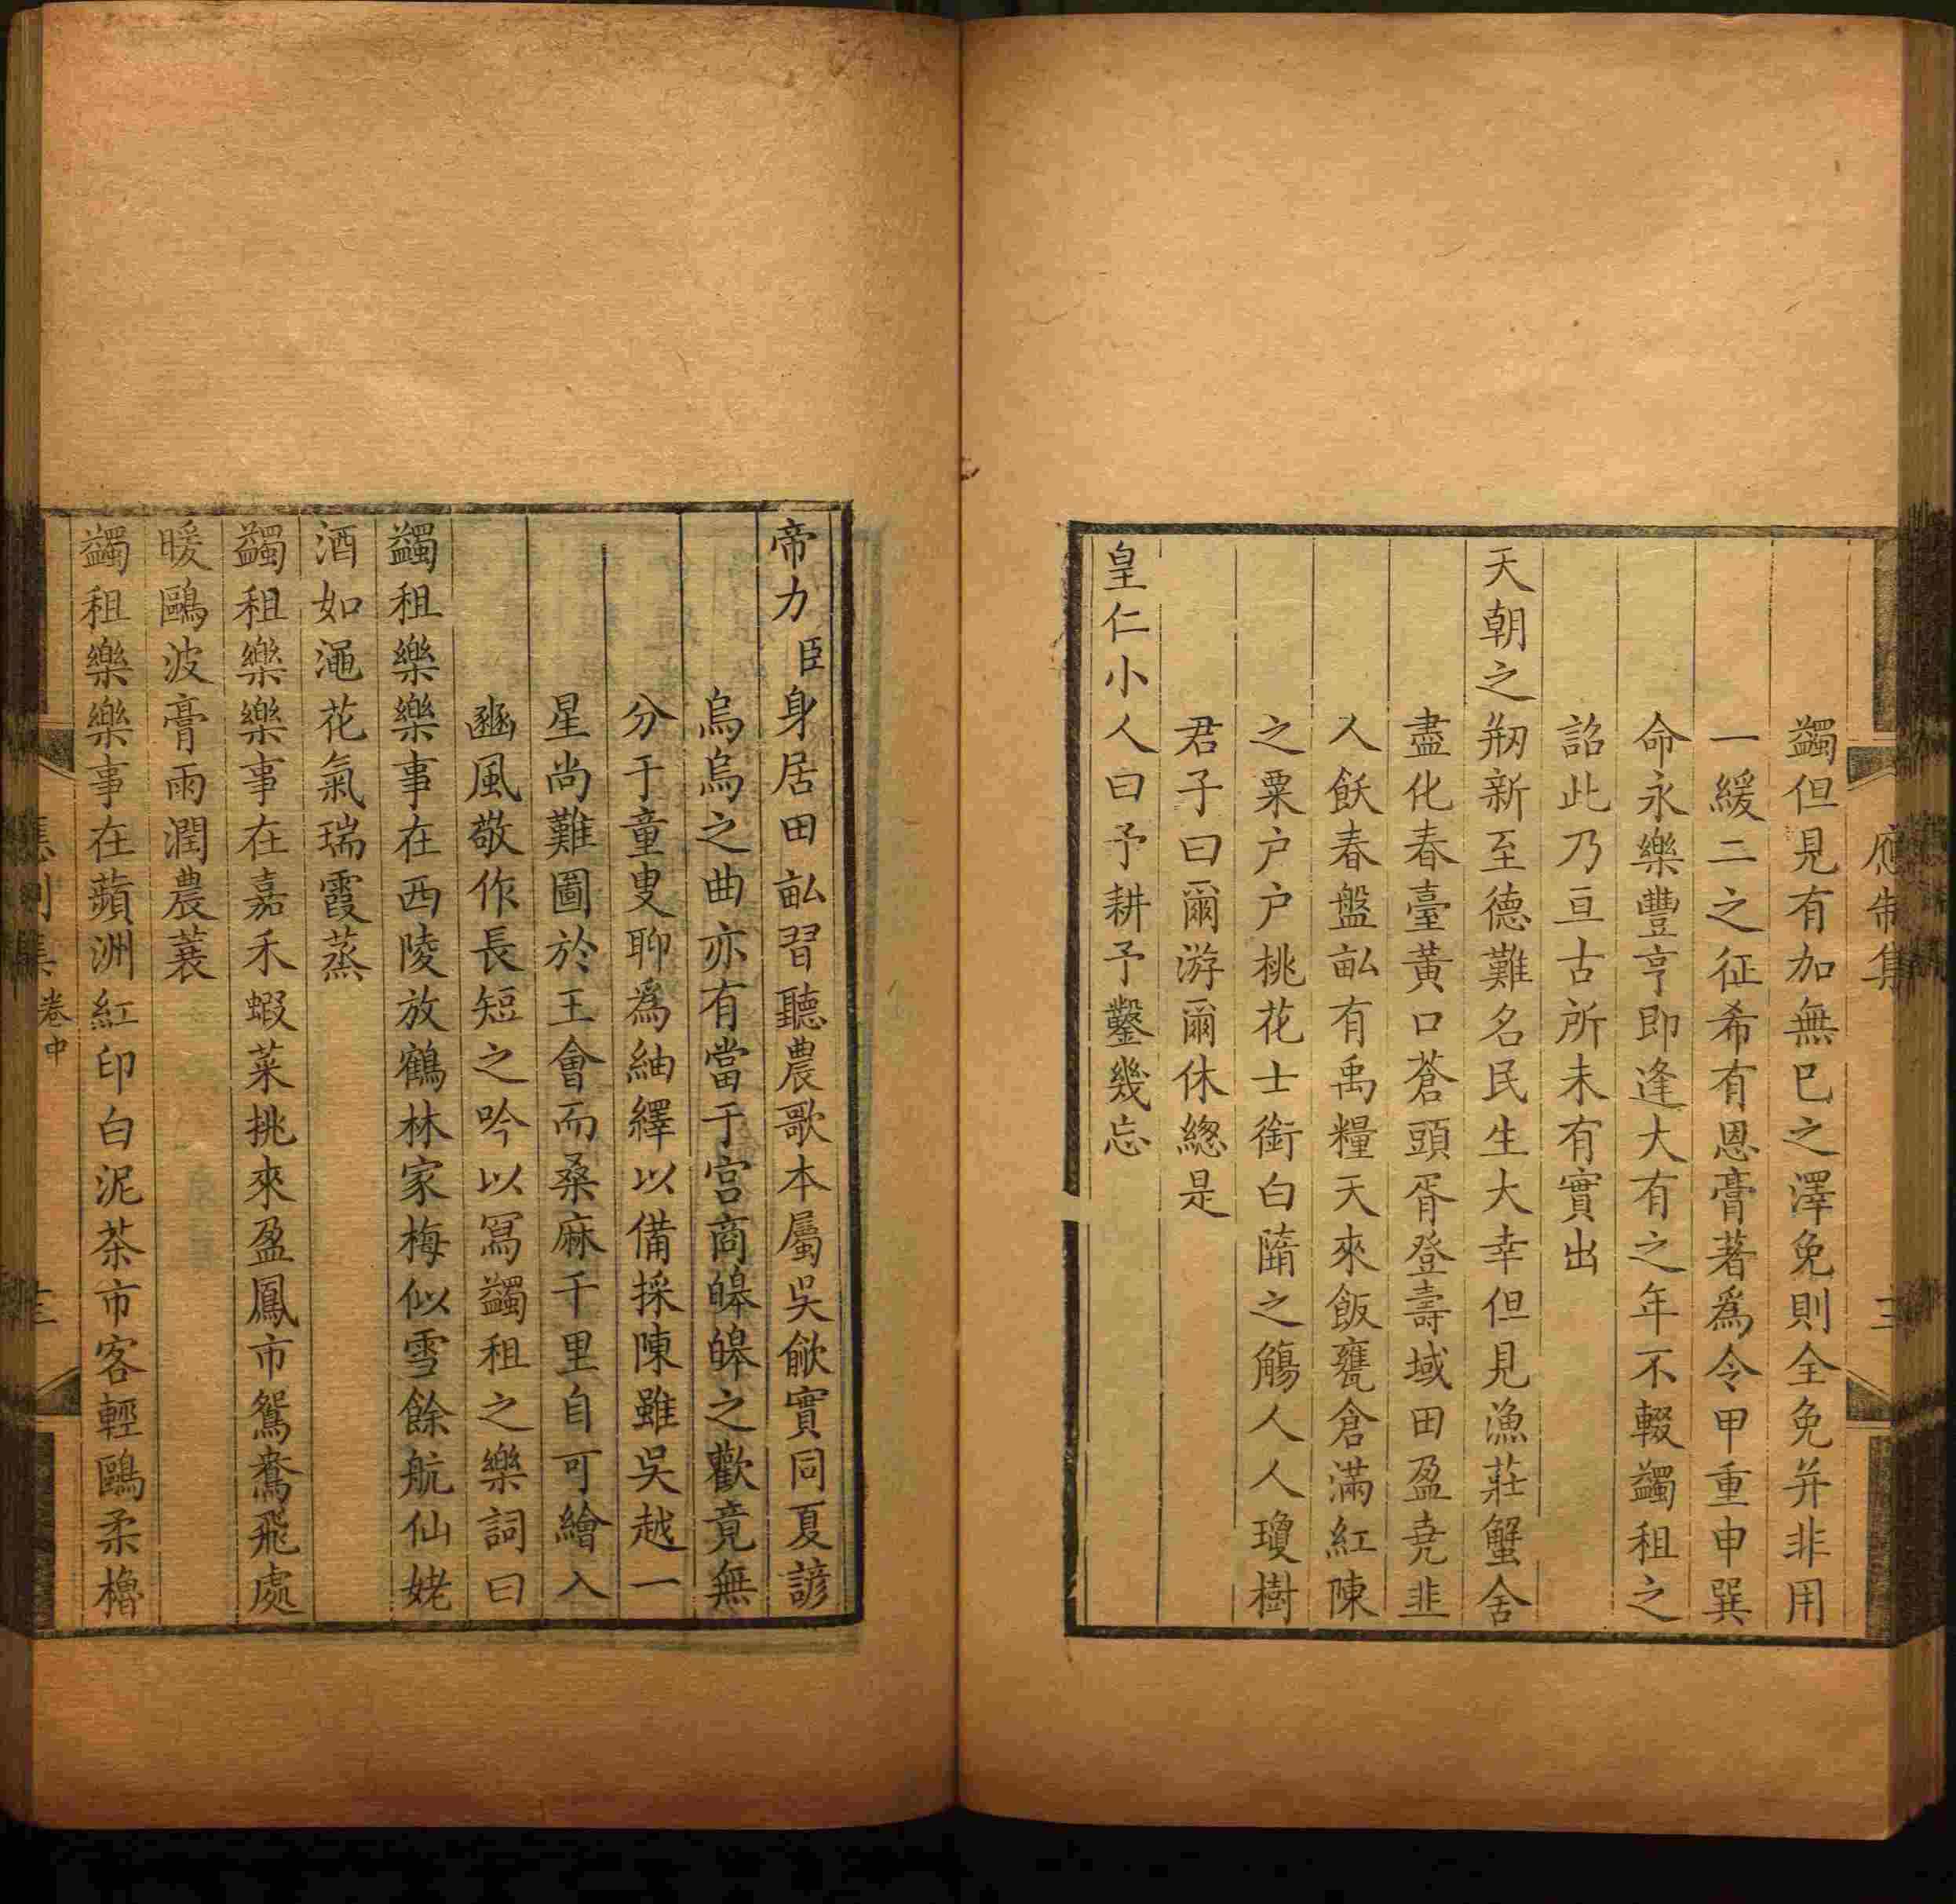 應制集
蠲但見有加無已之澤免則全免并非用
一緩二之征希有恩膏著爲令甲重申巽
命永樂豐亨即逢大有之年不輟蠲租之
詔此乃亘古所未有實出
天朝之刱新至德難名民生大幸但見漁莊蟹舍
盡化春臺黃口蒼頭胥登壽域田盈堯韭
人飫春盤畝有禹糧天來飯甕倉滿紅陳
之粟户户桃花士銜白墮之觴人人瓊樹
君子曰爾游爾休總是
皇仁小人曰予耕予鑿幾忘
帝力臣身居田畝習聽農歌本屬吳歈實同夏諺
烏烏之曲亦有當于宫商皞皞之歡竟無
分于童叟聊爲紬繹以備採陳雖吳越一
星尚難圖於王會而桑麻千里自可繪入
豳風敬作長短之吟以冩蠲租之樂詞曰
蠲租樂樂事在西陵放鶴林家梅似雪餘航仙姥
酒如澠花氣瑞霞蒸
蠲租樂樂事在嘉禾蝦菜挑來盈鳳市鴛鴦飛處
暖鷗波膏雨潤農蓑
蠲租樂樂事在蘋洲紅印白泥茶市客輕鷗柔櫓
應制集 卷中